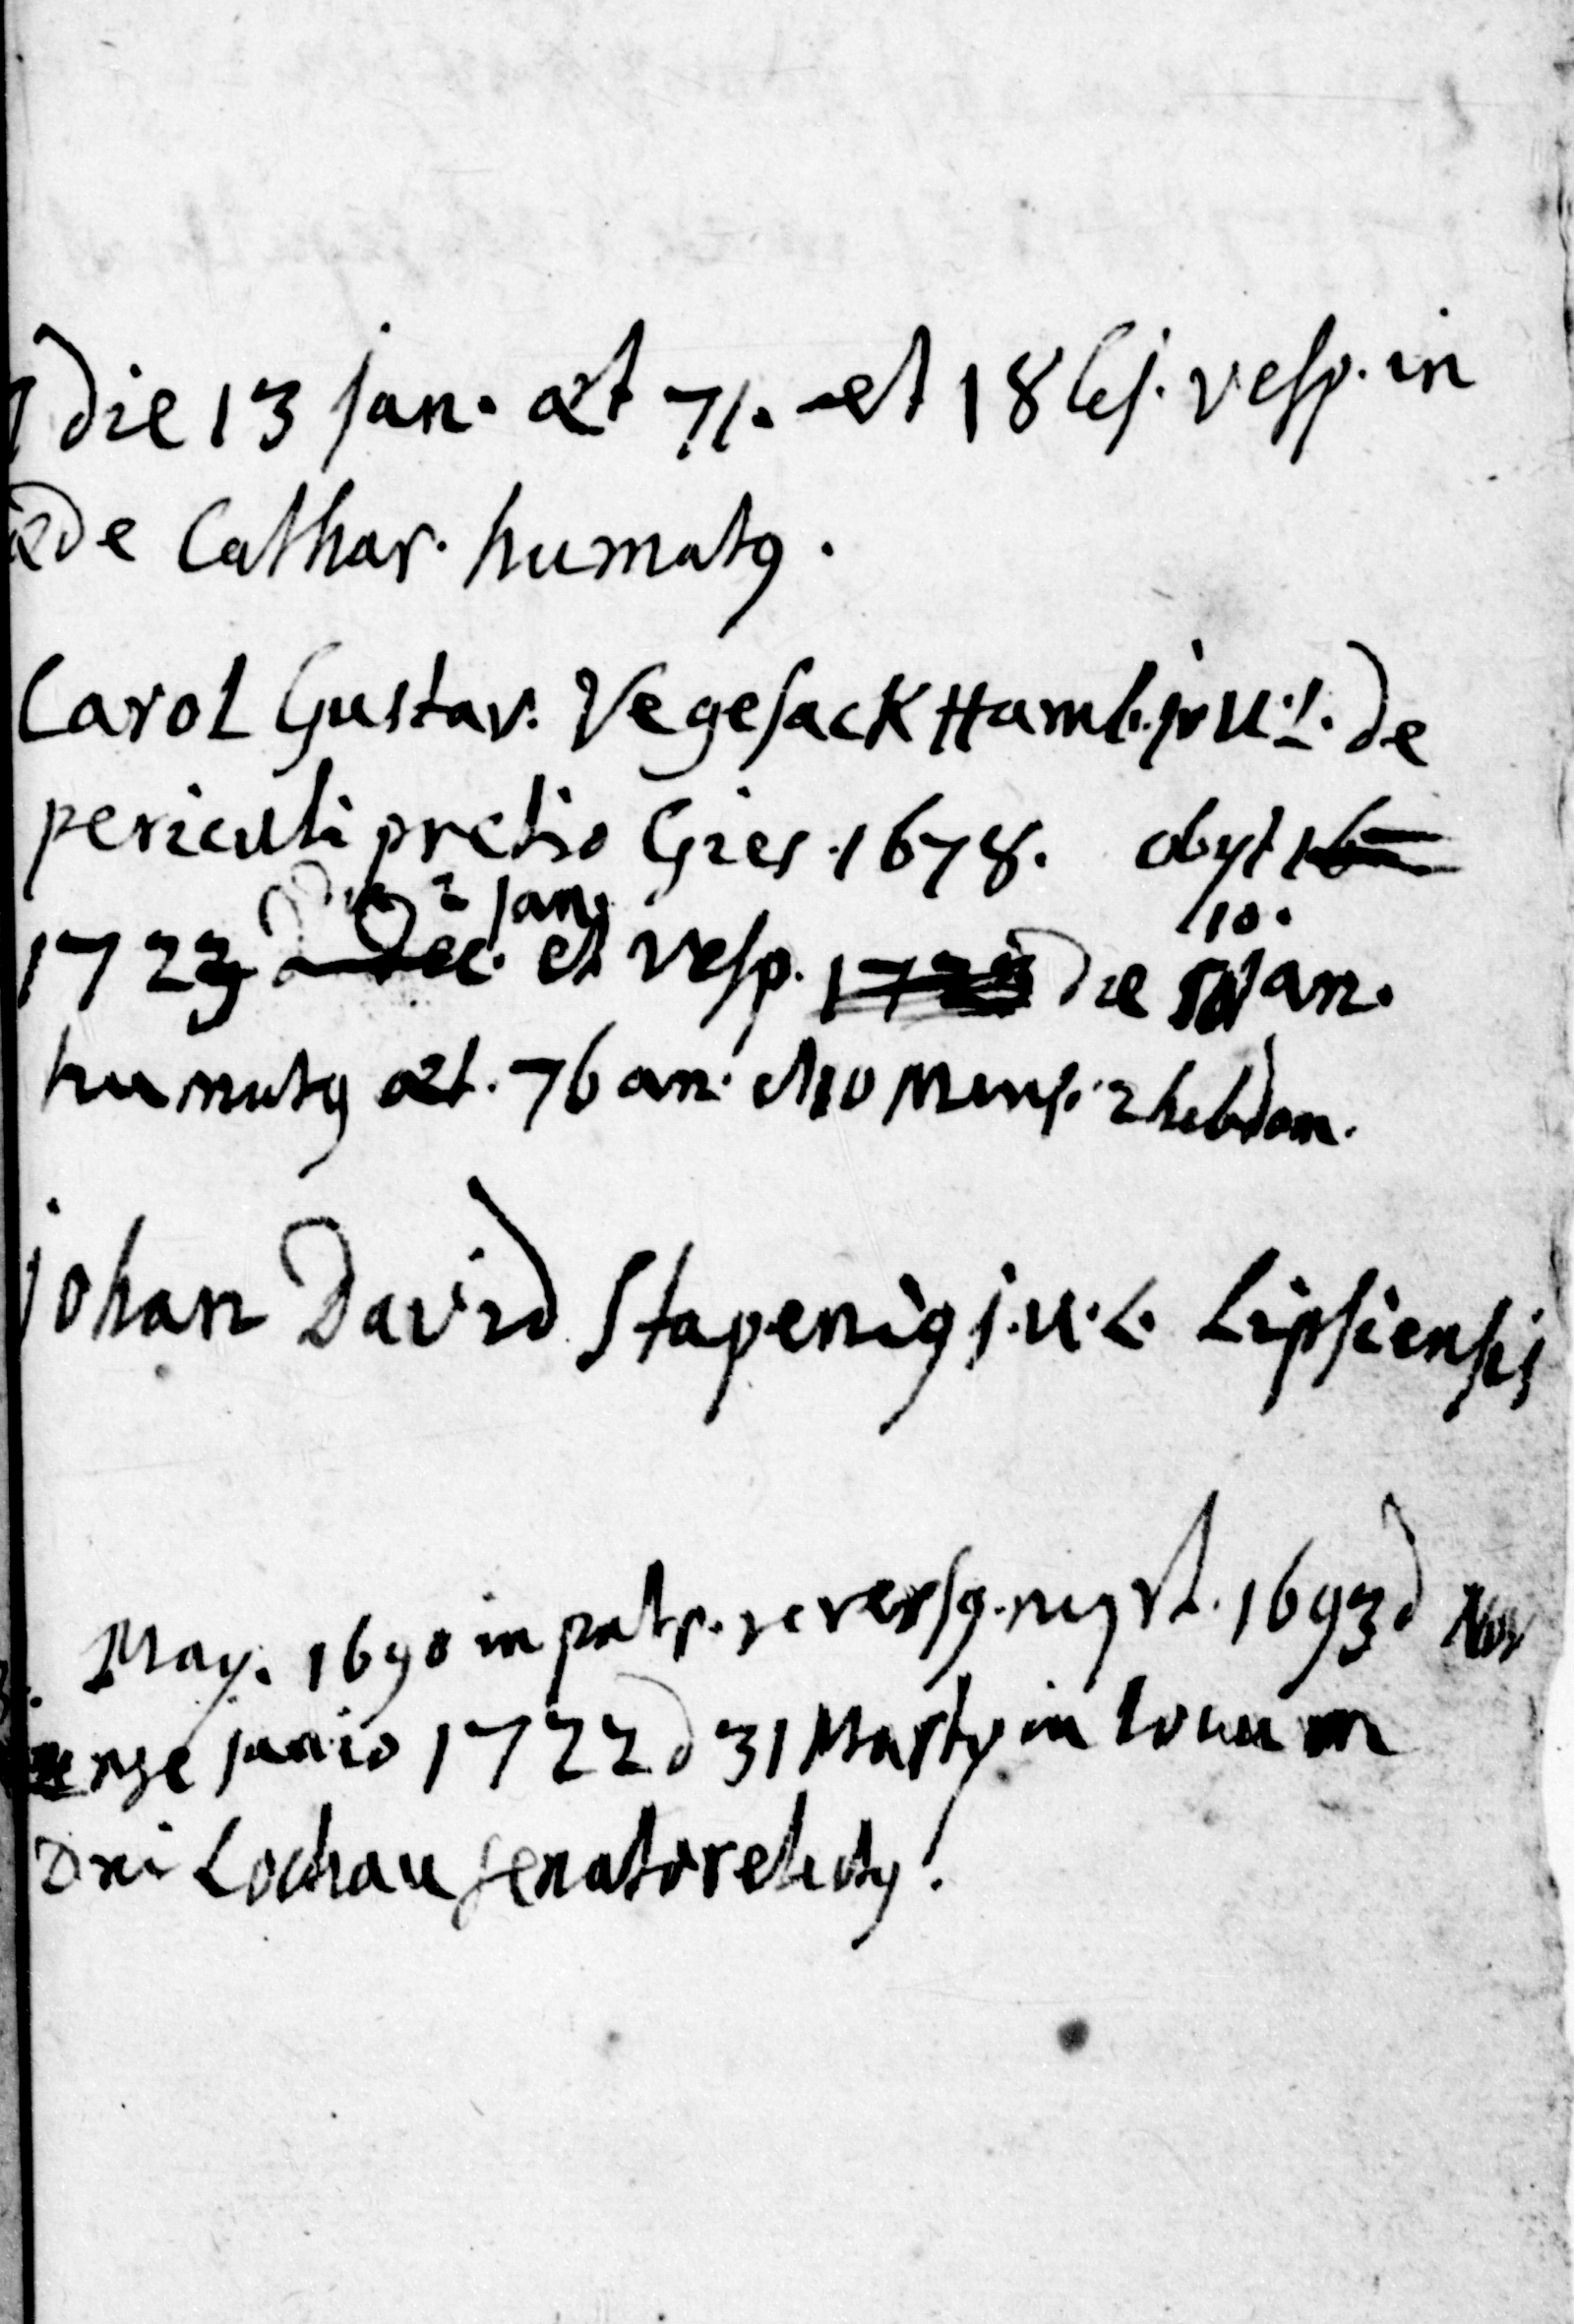 die 13 Jan. æt 71. et 18 ej. vesp. in
æde Cathar. humatꝰ.
Carol Gustav. Vegesack Hamb. j. u. l. de
periculi pretio Gies. 1678. obyt
die 2 Jan.
10.
1723 Dec. et vesp. die Jan.
humatꝰ æt. 76 an. et 10 mens. 2 hebdom.
Johan David Stapenig j. u. L. Lipsiensis
May. 1690 in patr. reversꝰ. 1693 d Nov
Junio 1722 d 31 Marty in locum
Dni Lochau senator electꝰ.